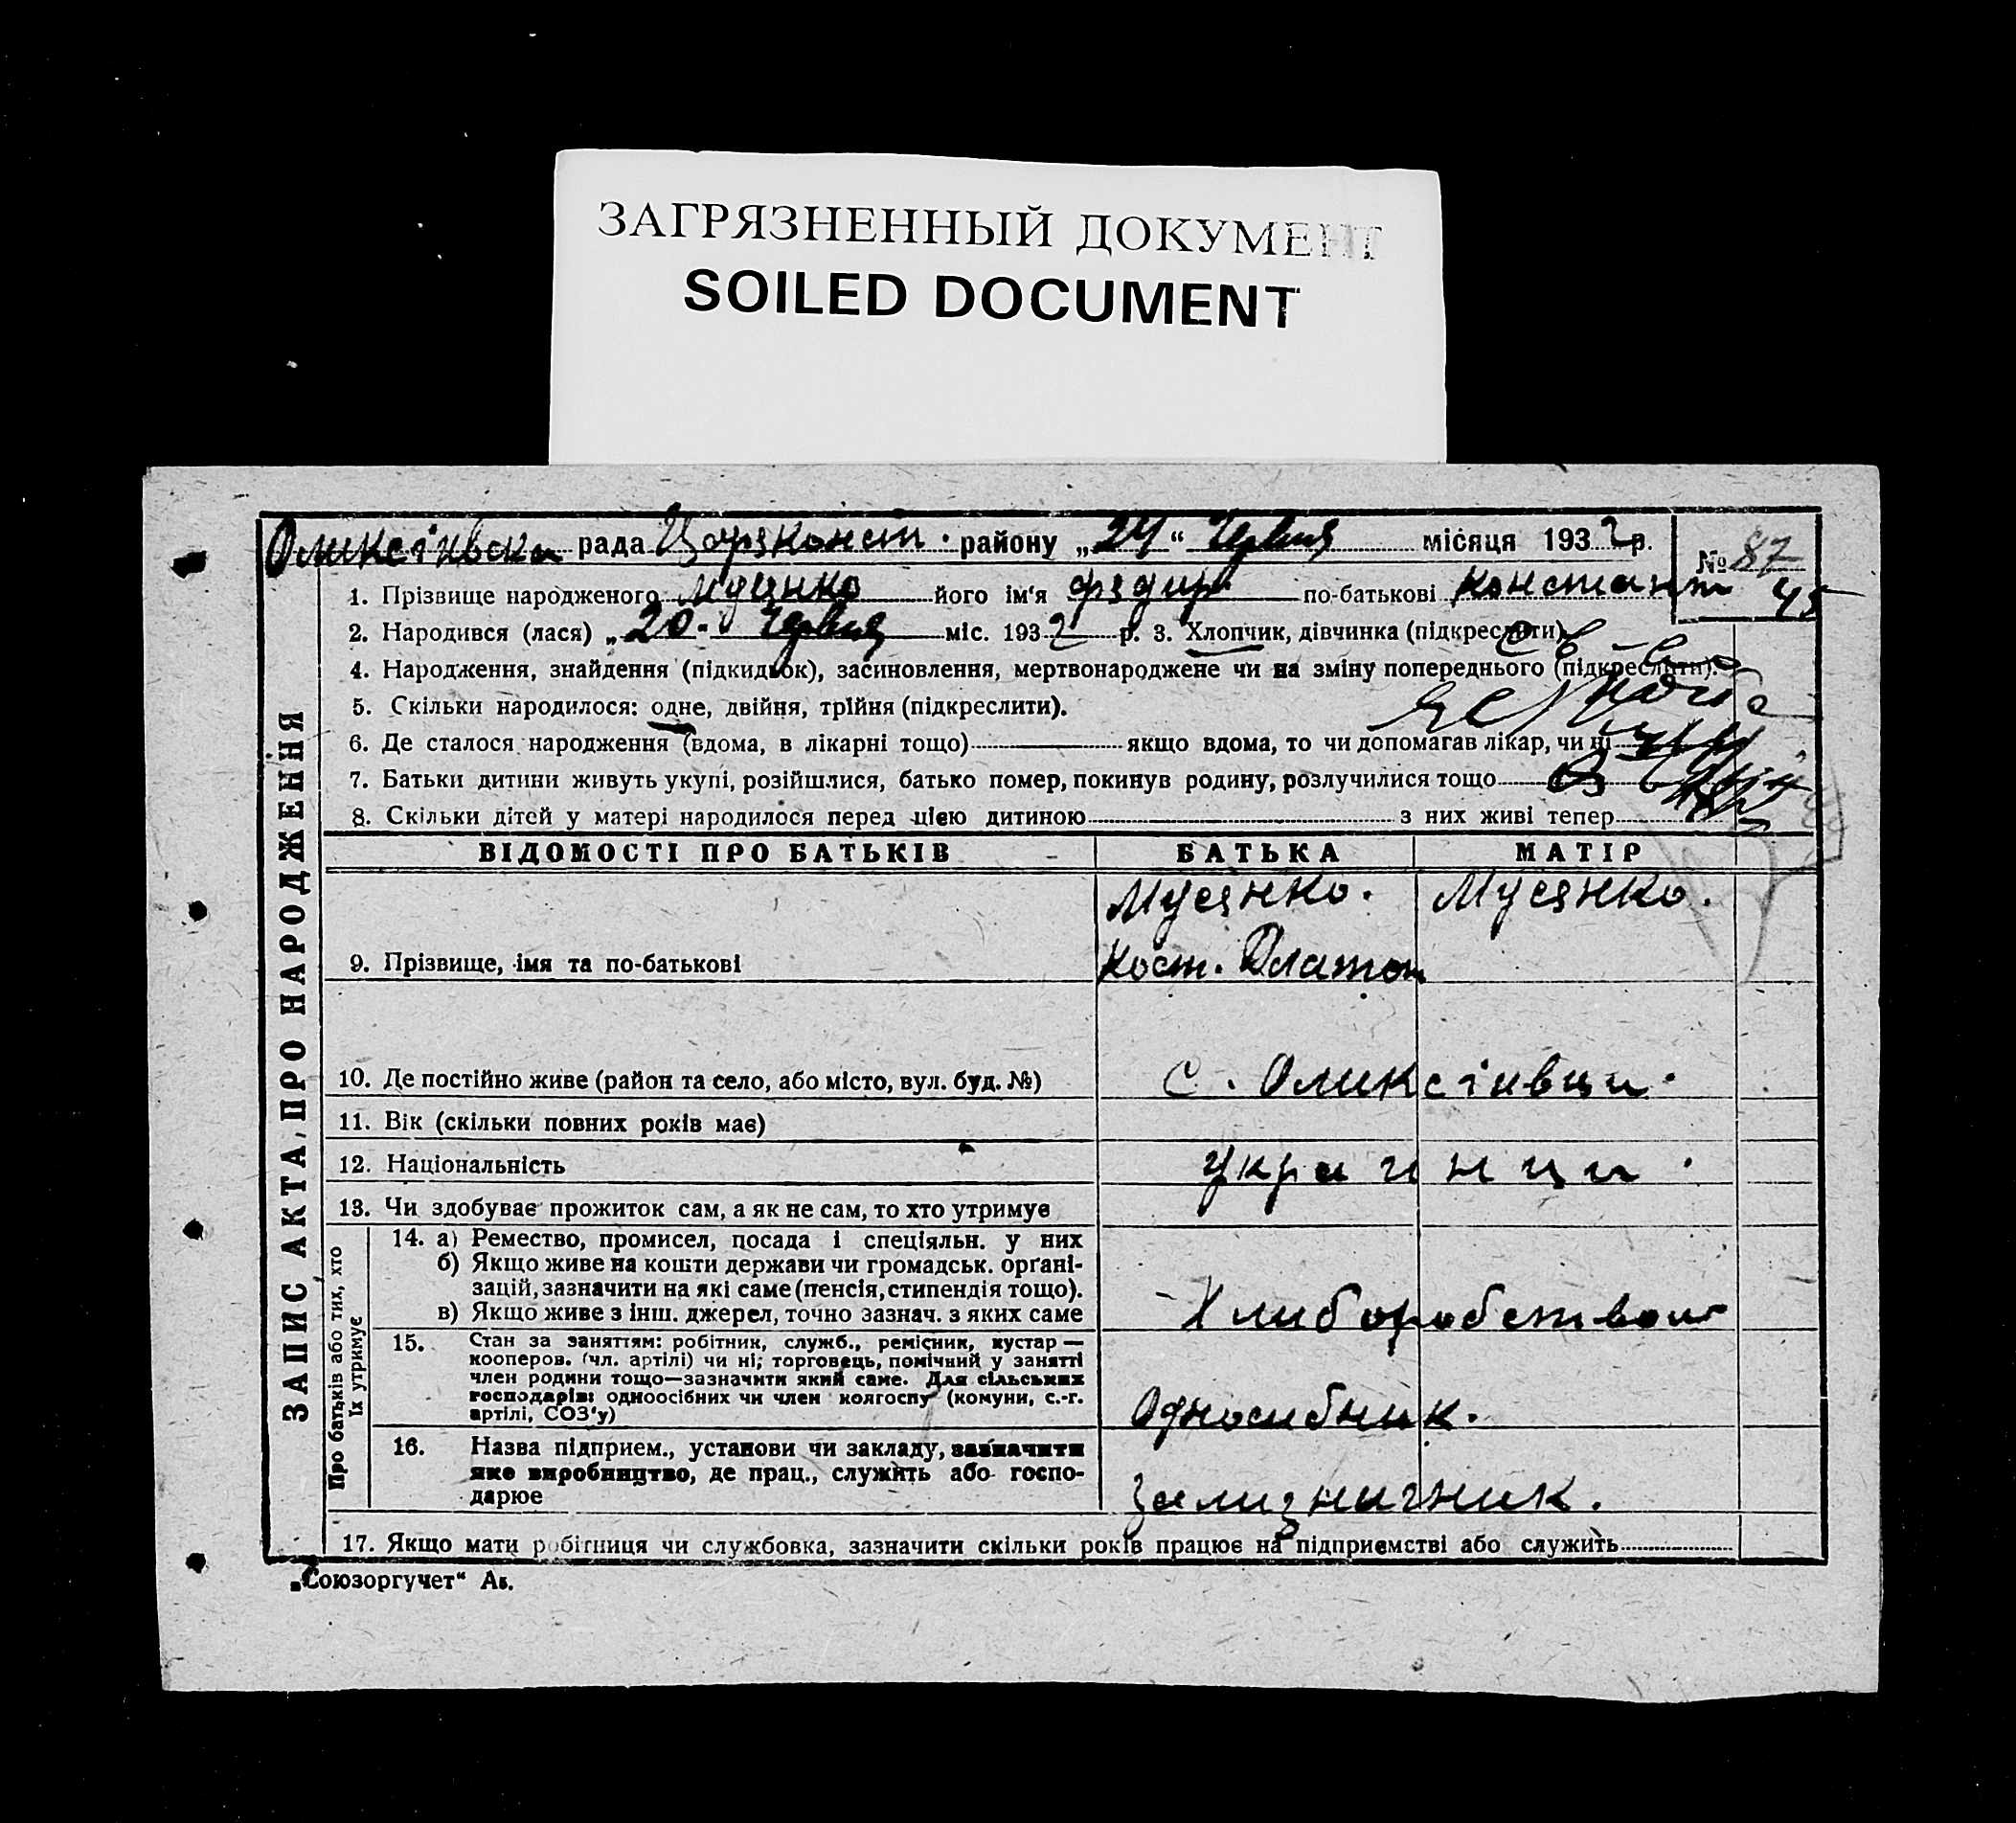 ЗАГРЯЗНЕННЫЙ ДОКУМЕНТ
SOILED DOCUMENT
Оликсіивска рада Царзконст. району „24“ Червня місяця 1932 р. № 87
1. Прізвище народженого Мусзнко його ім'я Фздир по-батькові Констант 45
2. Народився (лася) „20. Червня міс. 1932 р. 3. Хлопчик, дівчинка (підкреслити).
4. Народження, знайдення (підкидьок), засиновлення, мертвонароджене чи на зміну попереднього (підкреслити).
5. Скільки народилося: одне, двійня, трійня (підкреслити).
6. Де сталося народження (вдома, в лікарні тощо) якщо вдома, то чи допомагав лікар, чи ні
7. Батьки дитини живуть укупі, розійшлися, батько помер, покинув родину, розлучилися тощо
8. Скільки дітей у матері народилося перед цією дитиною з них живі тепер
ЗАПИС АКТА ПРО НАРОДЖЕННЯ
ВІДОМОСТІ ПРО БАТЬКІВ БАТЬКА МАТІР
Мусзнко. Мусзнко.
9. Прізвище, імя та по-батькові Кост. Платон
10. Де постійно живе (район та село, або місто, вул. буд. №) с. Оликсіивци.
11. Вік (скільки повних років має)
12. Національність украинци.
13. Чи здобуває прожиток сам, а як не сам, то хто утримує
Про батьків або тих, хто
їх утримує
14. а) Ремество, промисел, посада і спеціяльн. у них
б) Якщо живе на кошти держави чи громадськ. орґані-
зацій, зазначити на які саме (пенсія, стипендія тощо).
в) Якщо живе з інш. джерел, точно зазнач. з яких саме Хлиборобством
15. Стан за заняттям: робітник, служб., ремісник, кустар —
кооперов. (чл. артілі) чи ні; торговець, помічний у занятті
член родини тощо—зазначити який саме. Для сільських
господарів: одноосібних чи член колгоспу (комуни, с.-г.
артілі, СОЗ'у) Односибник.
16. Назва підприєм., установи чи закладу, зазначити
яке виробництво, де прац., служить або госпо-
дарює Зализничник.
17. Якщо мати робітниця чи службовка, зазначити скільки років працює на підприємстві або служить
„Союзоргучет“